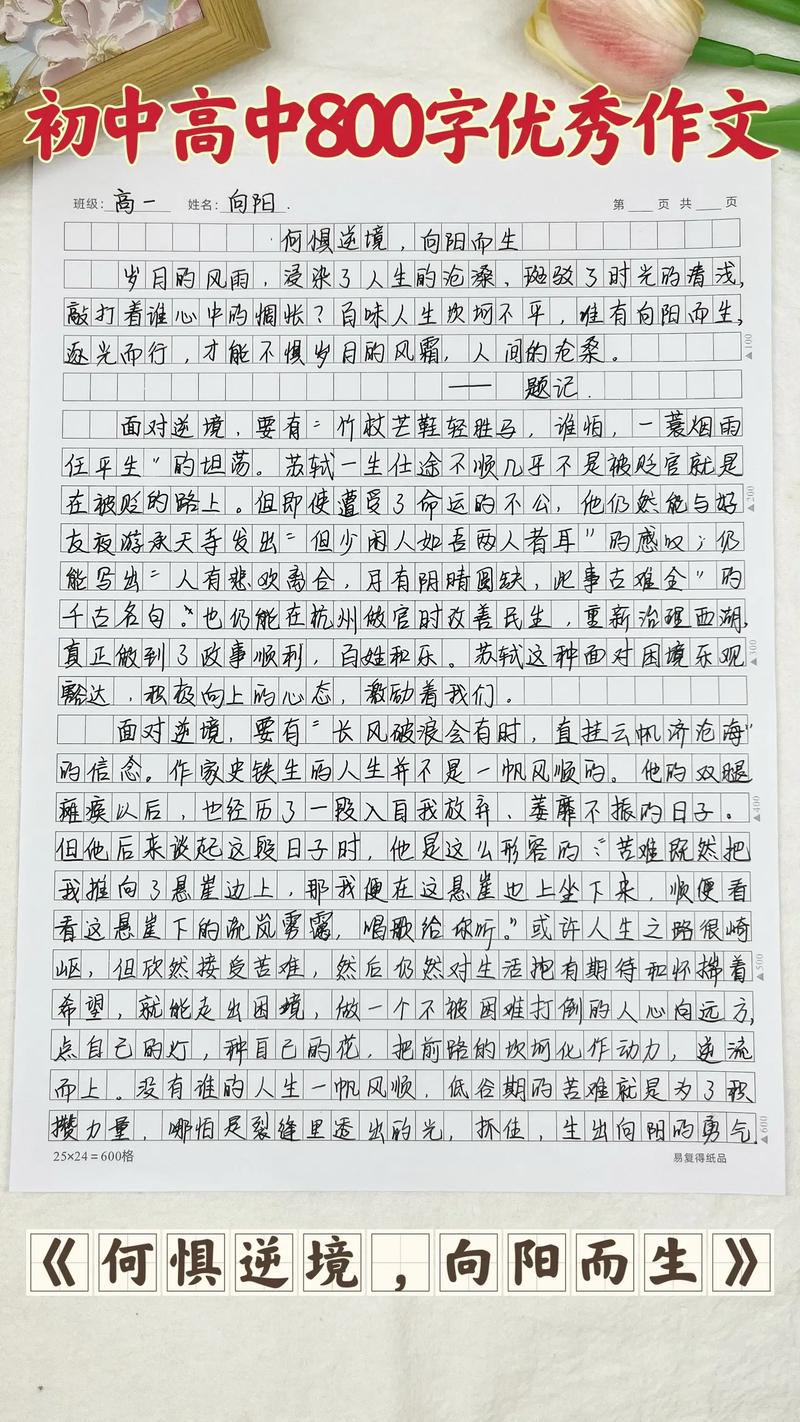 初中高中800字优秀作文
班级：高一 姓名：向阳. 第 页 共 页
何惧逆境，向阳而生
岁月的风雨，浸染了人生的沧桑、斑驳了时光的清浅，
敲打着谁心中的惆怅？百味人生坎坷不平，唯有向阳而生，
逐光而行，才能不惧岁月的风霜，人间的沧桑。
▲100
—— 题记.
面对逆境，要有“竹杖芒鞋轻胜马，谁怕，一蓑烟雨
任平生”的坦荡。苏轼一生仕途不顺几乎不是被贬官就是
在被贬的路上。但即使遭受了命运的不公，他仍然能与好
▲200
友夜游承天寺发出“但少闲人如吾两人者耳”的感叹；仍
能写出“人有悲欢离合，月有阴晴圆缺，此事古难全”的
千古名句。也仍能在杭州做官时改善民生，重新治理西湖，
真正做到了政事顺利，百姓和乐。苏轼这种面对困境乐观
▲300
豁达，积极向上的心态，激励着我们。
面对逆境，要有“长风破浪会有时，直挂云帆济沧海”
的信念。作家史铁生的人生并不是一帆风顺的。他的双腿
瘫痪以后，也经历了一段入自我放弃、萎靡不振的日子。
▲400
但他后来谈起这段日子时，他是这么形容的：“苦难既然把
我推向了悬崖边上，那我便在这悬崖边上坐下来，顺便看
看这悬崖下的流岚雾霭，唱歌给你听。”或许人生之路很崎
岖，但欣然接受苦难，然后仍然对生活抱有期待和怀揣着
▲500
希望，就能走出困境，做一个不被困难打倒的人心向远方，
点自己的灯，种自己的花，把前路的坎坷化作动力，逆流
而上。没有谁的人生一帆风顺，低谷期的苦难就是为了积
攒力量，哪怕是裂缝里透出的光，抓住，生出向阳的勇气
▲600
25×24=600格 易复得纸品
《何惧逆境，向阳而生》